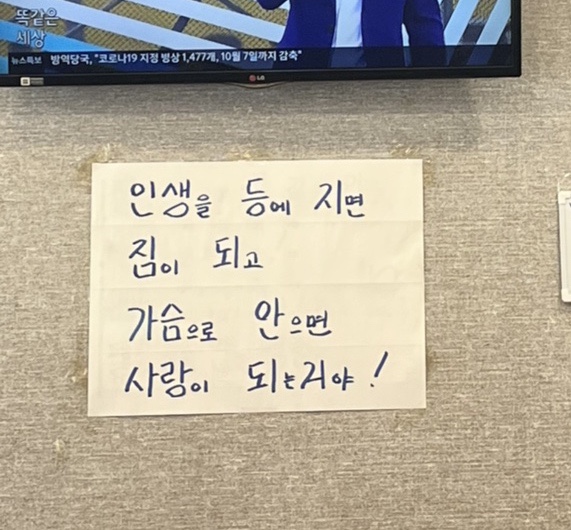 똑같은
세상
뉴스특보 방역당국, "코로나19 지정 병상 1,477개, 10월 7일까지 감축"
LG
인생을 등에 지면
짐이 되고
가슴으로 안으면
사랑이 되는거야!